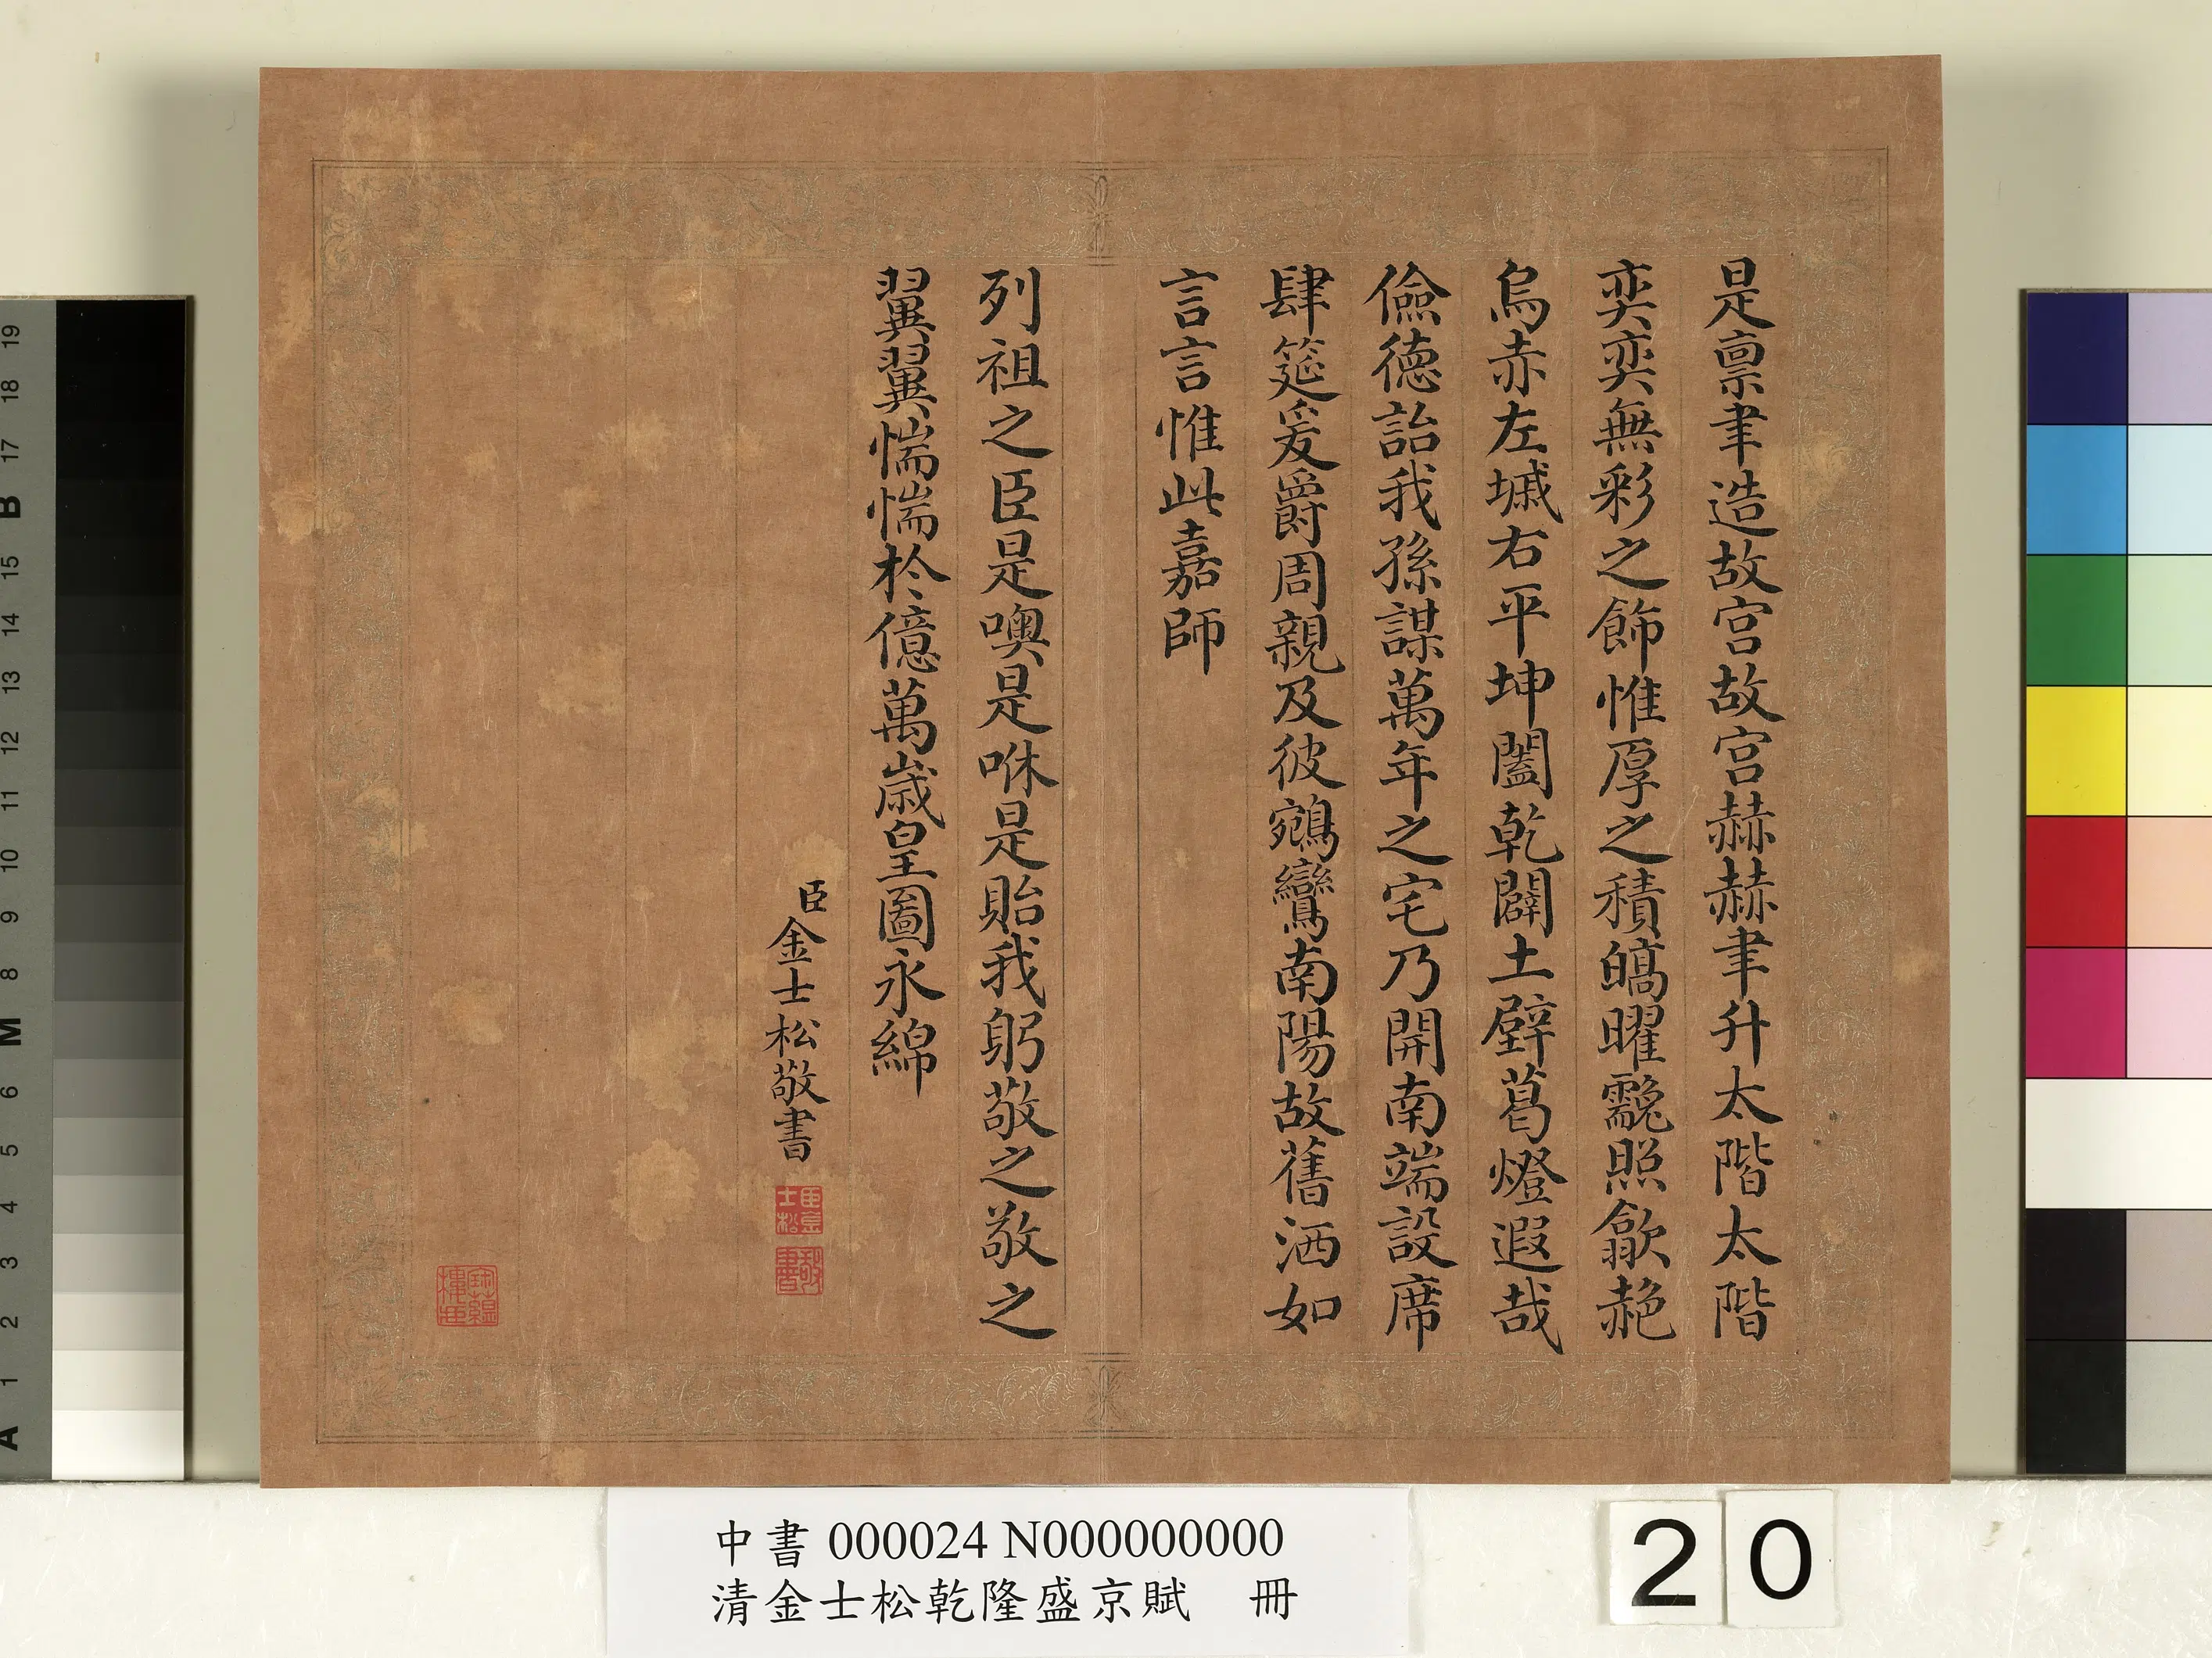 是禀聿造故宮故宮赫赫聿升太階太階
奕奕無彩之飾惟厚之積皜曜靉照歙赩
烏赤左墄右平坤闔乾闢土壁葛燈遐哉
儉德詒我孫謀萬年之宅乃開南端設席
肆筵爰爵周親及彼鵷鸞南陽故舊洒如
言言惟此嘉師
列祖之臣是噢是咻是貽我躬敬之敬之
翼翼惴惴於億萬歲皇圖永綿
臣金士松敬書
臣金士松
敬書
中書 000024 N000000000
清金士松乾隆盛京賦 冊
20
19
18
17
B
15
14
13
12
11
10
9
8
M
6
5
4
3
2
1
A